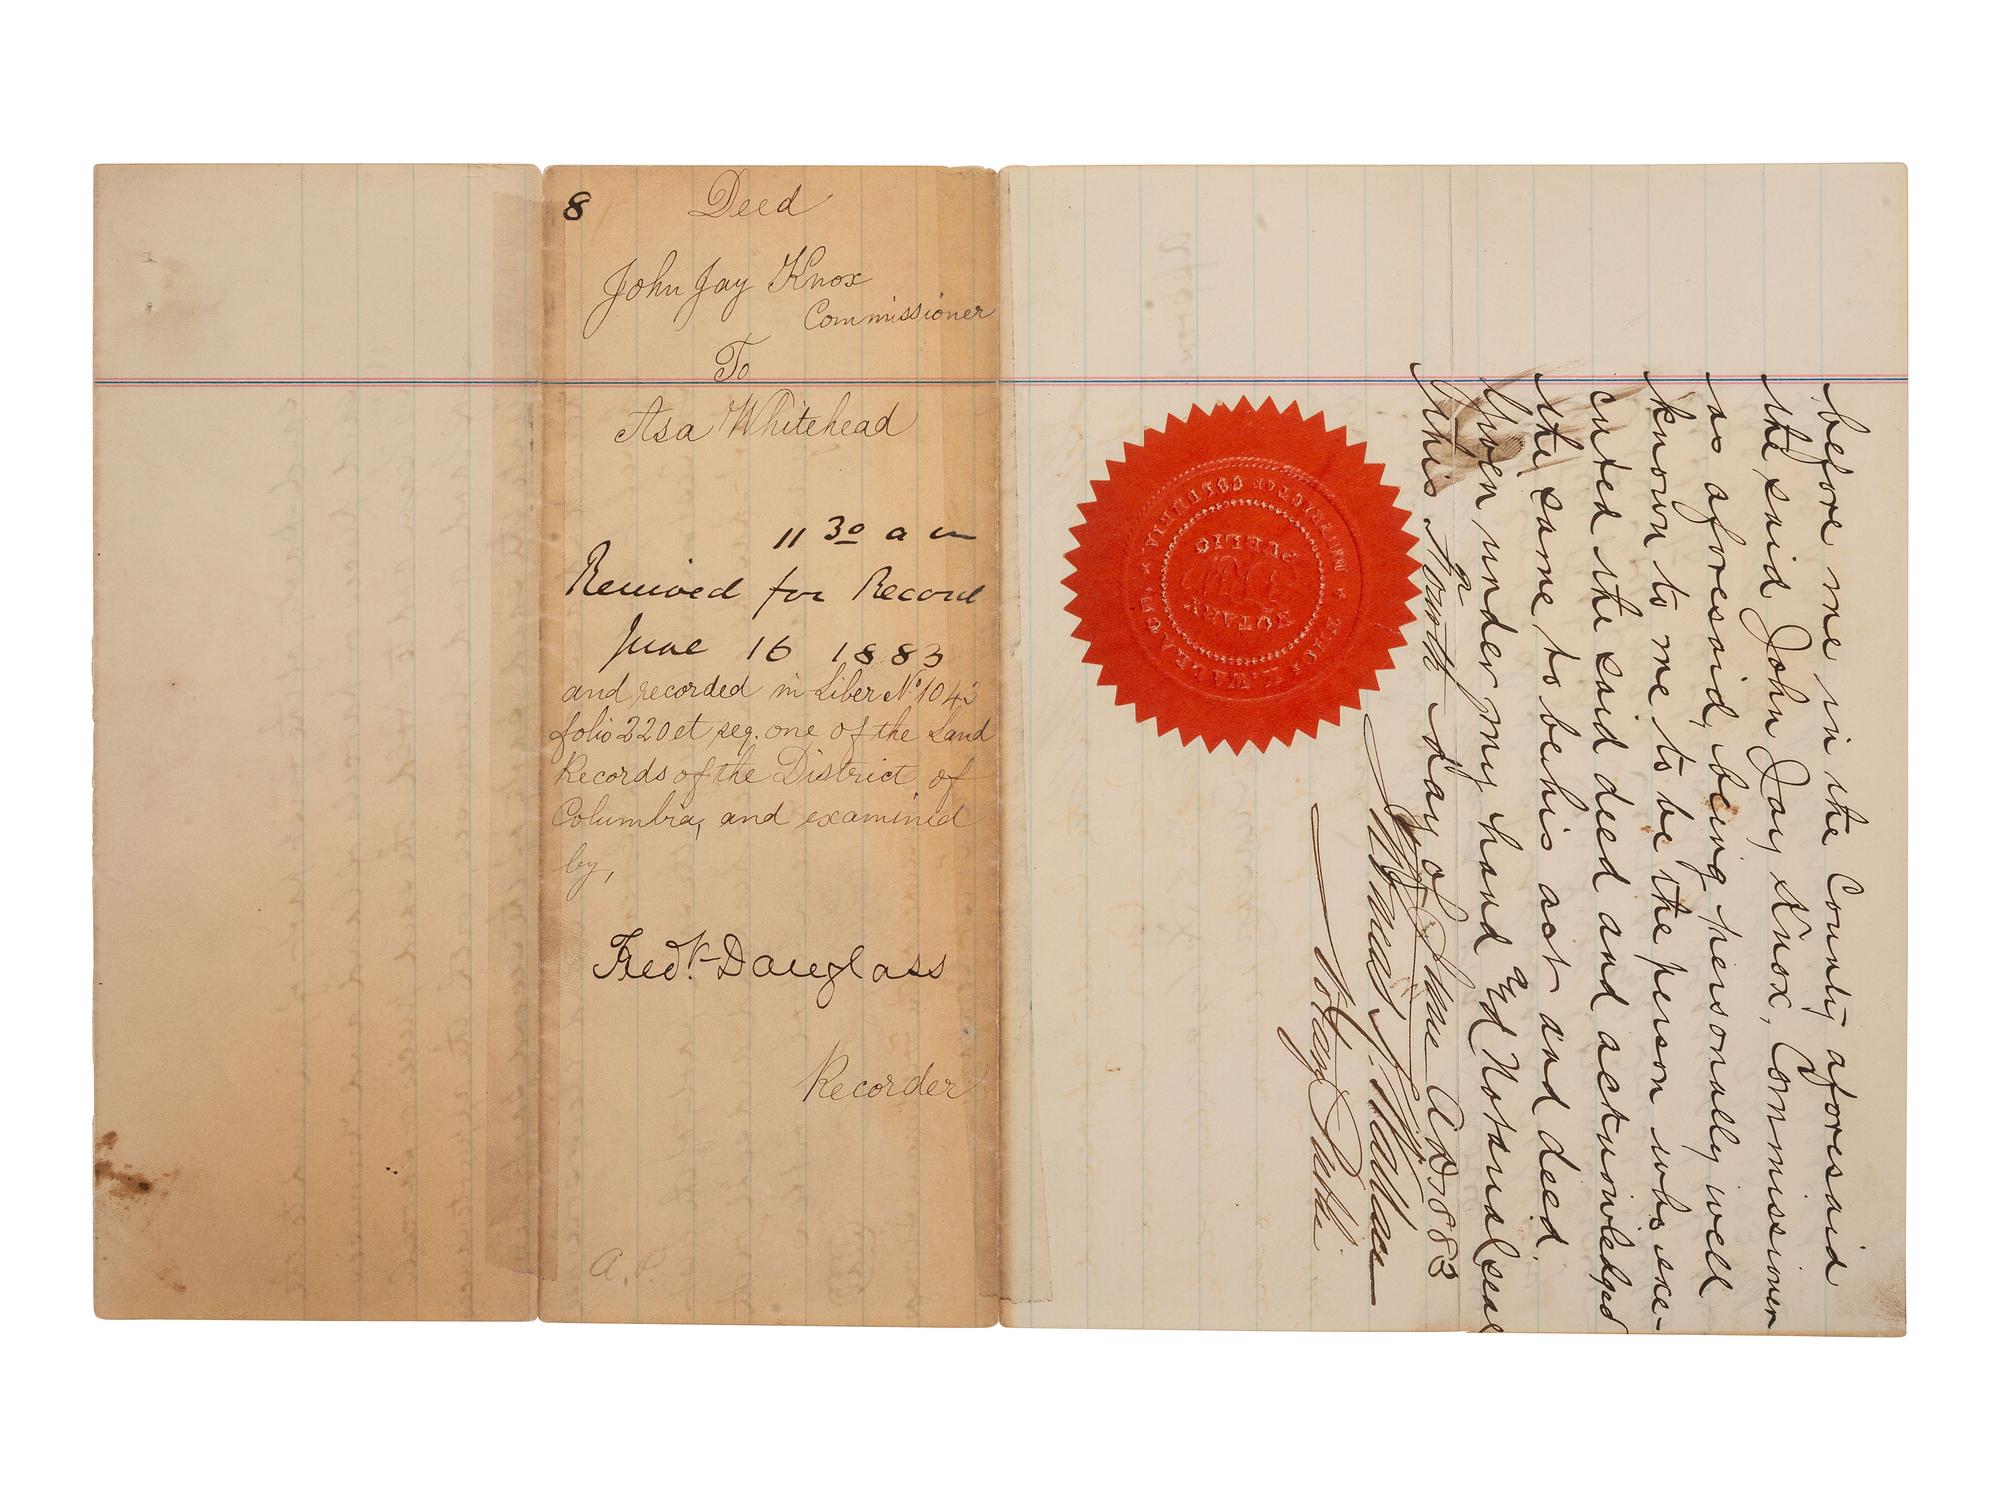 8
Deed
John Jay Knox
Commissioner
To
Asa Whitehead
11 30 a m
Received for Record
June 16 1883
and recorded in Liber No 1043
folio 220 et seq. one of the Land
Records of the District of
Columbia, and examined
by,
Fredk Douglass
Recorder
A.P.
before me in the County aforesaid
the said John Jay Knox, Commissioner
as aforesaid, being personally well
known to me to be the person who exe-
cuted the said deed and acknowledged
the same to be his act and deed.
Given under my hand and Notarial seal
this Fourth day of June A D 1883
Notary Public
NOTARY
PUBLIC
DISTRICT OF COLUMBIA